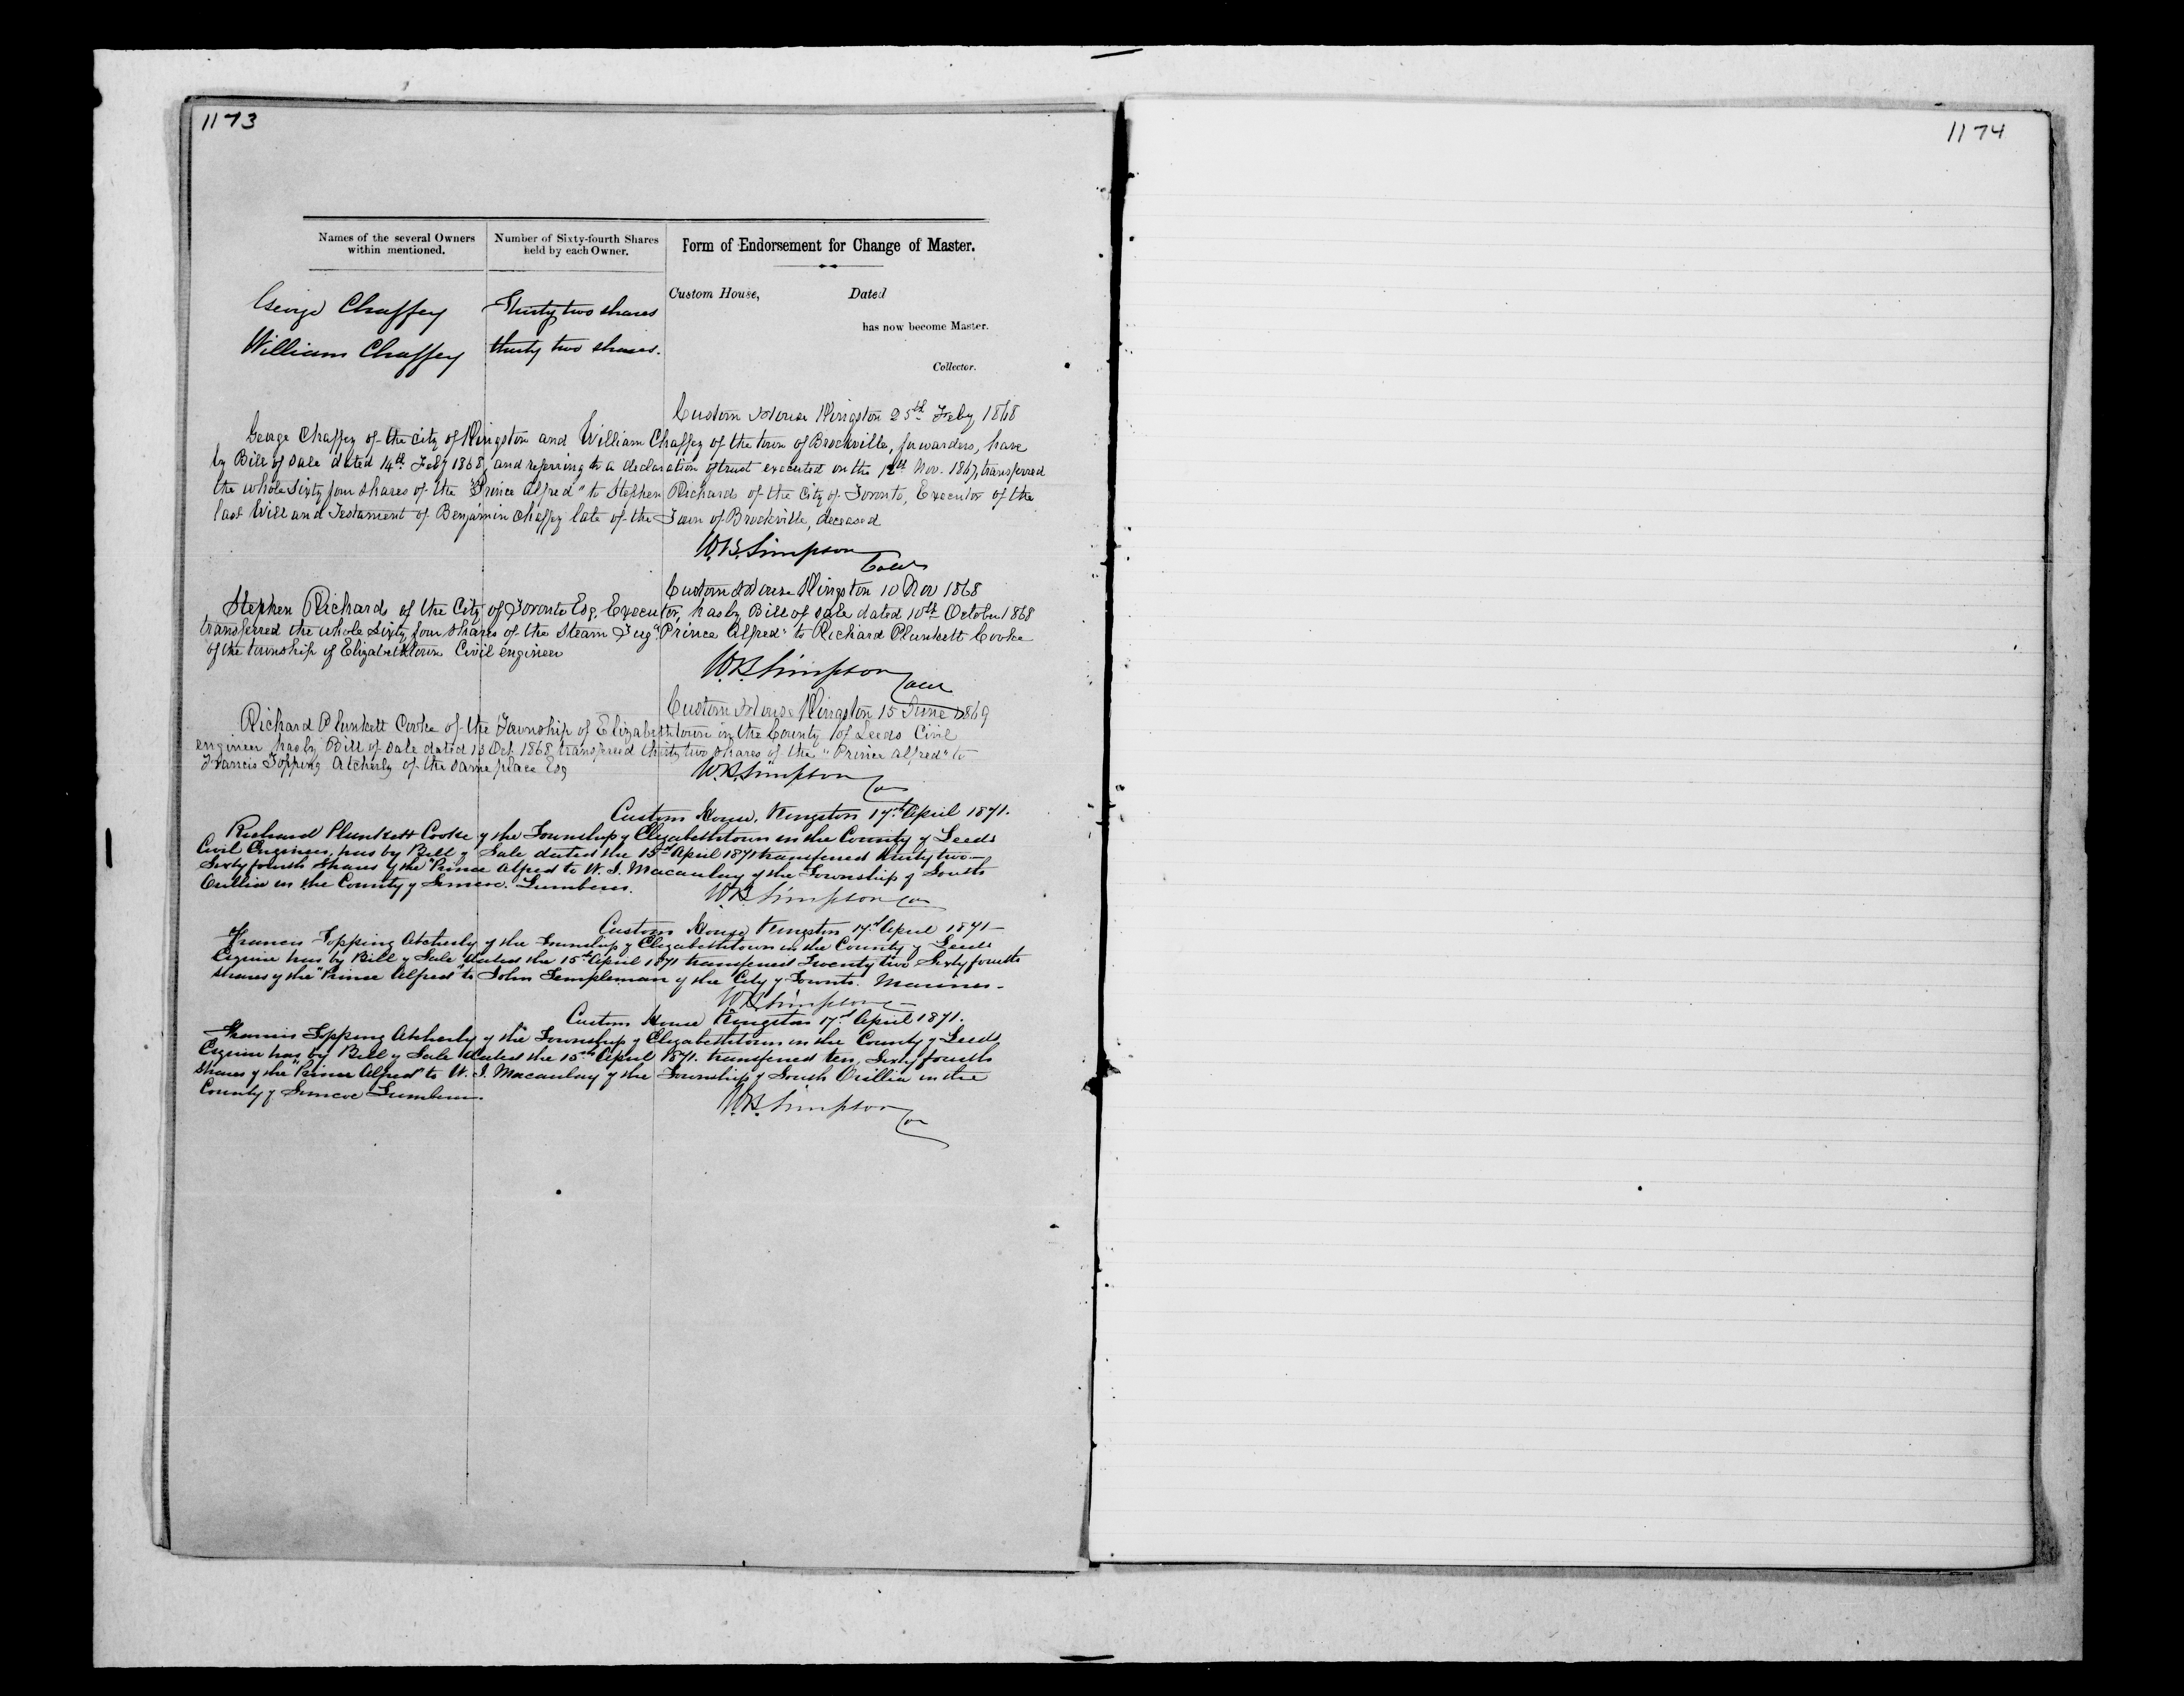 1173
1174
Names of the several Owners within mentioned.
Number of Sixty-fourth Shares held by each Owner.
Form of Endorsement for Change of Master.
George Chaffey
Thirty two shares
Custom House, Dated
has now become Master.
William Chaffey
thirty two shares.
Collector.
Custom House Kingston 25th Feby 1868
George Chaffey of the City of Kingston and William Chaffey of the town of Brockville, forwarders, have
by Bill of Sale dated 14th Feby 1868, and referring to a declaration of trust executed on the 12th Nov. 1867, transferred
the whole Sixty four shares of the "Prince Alfred" to Stephen Richards of the City of Toronto, Executor of the
last Will and Testament of Benjamin Chaffey late of the Town of Brockville, deceased
W.B. Simpson
Custom House Kingston 10 Nov 1868
Stephen Richards of the City of Toronto Esq. Executor, has by Bill of Sale dated 10th October 1868
transferred the whole sixty four shares of the Steam Tug "Prince Alfred" to Richard Plunkett Cooke
of the township of Elizabethtown Civil engineer
W.B. Simpson
Custom House Kingston 15 June 1869
Richard Plunkett Cooke of the Township of Elizabethtown in the County of Leeds Civil
engineer has by Bill of Sale dated 13 Oct 1868 transferred thirty two shares of the "Prince alfred" to
Francis Topping Atcherly of the same place Esq
W.B. Simpson
Custom House, Kingston 17th April 1871.
Richard Plunkett Cooke of the Township of Elizabethtown in the County of Leeds
Civil Engineer, has by Bill of Sale dated the 15th April 1871 transferred thirty two
Sixty fourth Shares of the "Prince Alfred to W. J. Macaulay of the Township of South
Orillia in the County of Simcoe. Lumberer.
W.B. Simpson
Custom House Kingston 17th April 1871
Francis Topping Atcherly of the Township of Elizabethtown in the County of Leeds
Esquire has by Bill of Sale dated the 15th April 1871 transferred Twenty two Sixty fourth
Shares of the "Prince Alfred" to John Templeman of the City of Toronto. Mariner.
W.B. Simpson
Custom House Kingston 17th April 1871.
Francis Topping Atcherly of the Township of Elizabethtown in the County of Leeds
Esquire has by Bill of Sale dated the 15th April 1871. transferred ten, Sixty fourth
Shares of the "Prince Alfred" to W. J. Macaulay of the Township of South Orillia in the
County of Simcoe Lumberer.
W.B. Simpson